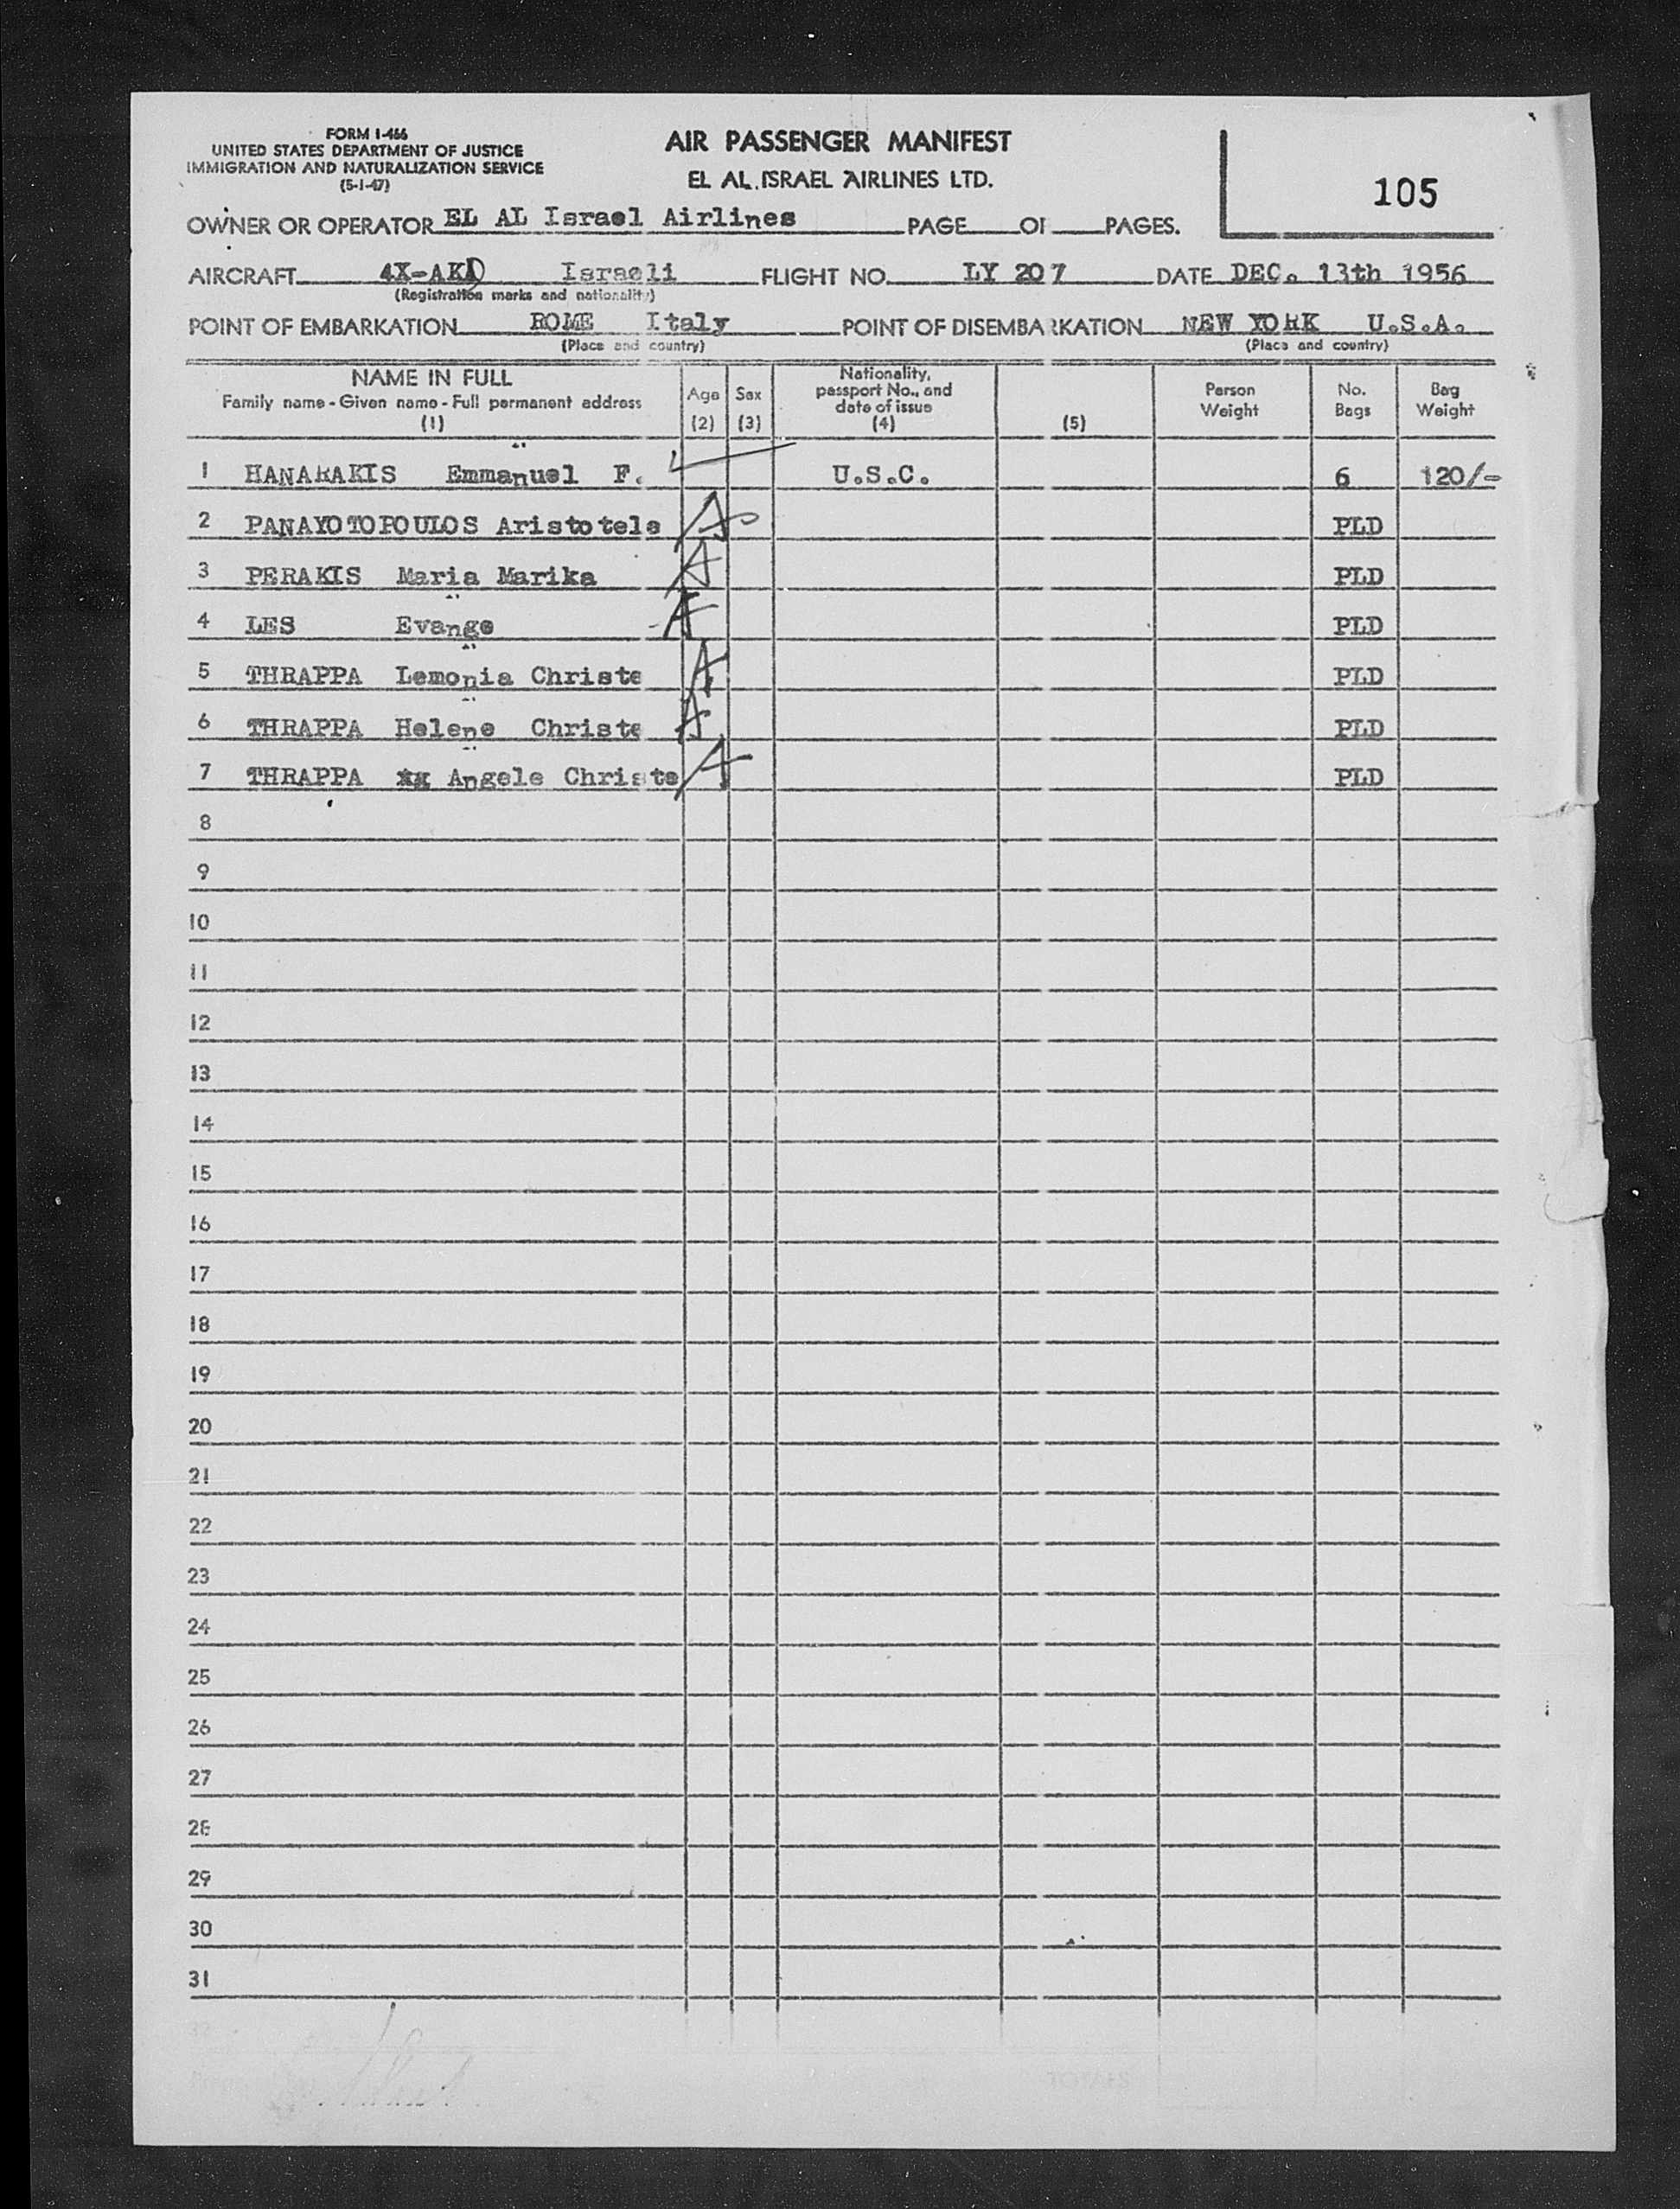 FORM I-466
UNITED STATES DEPARTMENT OF JUSTICE
IMMIGRATION AND NATURALIZATION SERVICE
(5-1-47)
AIR PASSENGER MANIFEST
EL AL ISRAEL AIRLINES LTD.
105
OWNER OR OPERATOR EL AL Israel Airlines PAGE OF PAGES.
AIRCRAFT 4X-AKD Israeli FLIGHT NO. LY 207 DATE DEC. 13th 1956
(Registration marks and nationality)
POINT OF EMBARKATION ROME Italy POINT OF DISEMBARKATION NEW YORK U.S.A.
(Place and country) (Place and country)
NAME IN FULL
Family name - Given name - Full permanent address
(1)
Age
(2)
Sex
(3)
Nationality,
passport No., and
date of issue
(4)
(5)
Person
Weight
No.
Bags
Bag
Weight
1 HANARAKIS Emmanuel F. U.S.C. 6 120/-
2 PANAYOTOPOULOS Aristotele A PLD
3 PERAKIS Maria Marika A PLD
4 LES Evange A PLD
5 THRAPPA Lemonia Christe A PLD
6 THRAPPA Helene Christe A PLD
7 THRAPPA Angele Christe A PLD
8
9
10
11
12
13
14
15
16
17
18
19
20
21
22
23
24
25
26
27
28
29
30
31